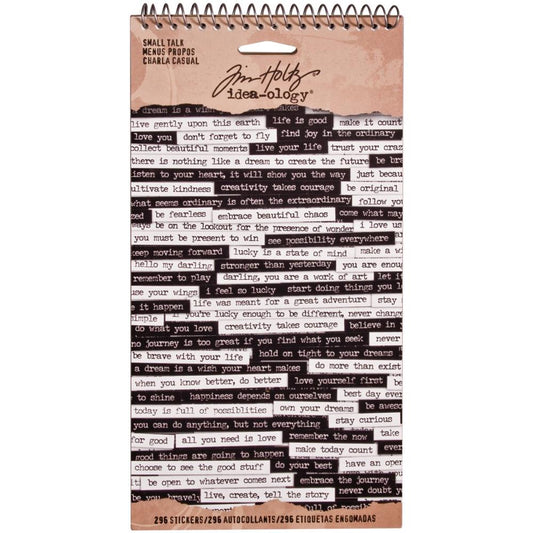 SMALL TALK
MENUS PROPOS
CHARLA CASUAL
Tim Holtz
idea-ology®
dream is a wish makes
live gently upon this earth life is good make it count
love you don't forget to fly find joy in the ordinary
collect beautiful moments live your life trust your craz
there is nothing like a dream to create the future be br
listen to your heart, it will show you the way just becau
ultivate kindness creativity takes courage be original
what seems ordinary is often the extraordinary follow yo
zed be fearless embrace beautiful chaos come what may
ways be on the lookout for the presence of wonder i love us
you must be present to win see possibility everywhere
keep moving forward lucky is a state of mind make a wi
hello my darling stronger than yesterday you are enoug
remember to play darling, you are a work of art let it
use your wings i feel so lucky start doing things you l
e it happen life was meant for a great adventure stay
simple if you're lucky enough to be different, never change
do what you love creativity takes courage believe in y
no journey is too great if you find what you seek never
be brave with your life hold on tight to your dreams
a dream is a wish your heart makes do more than exist
when you know better, do better love yourself first be
to shine happiness depends on ourselves best day ever
today is full of possiblities own your dreams be aweso
you can do anything, but not everything stay curious
for good all you need is love remember the now take
good things are going to happen make today count ever
choose to see the good stuff do your best have an open
it be open to whatever comes next embrace the journey
be you bravely live, create, tell the story never doubt y
296 STICKERS/296 AUTOCOLLANTS/296 ETIQUETAS ENGOMADAS